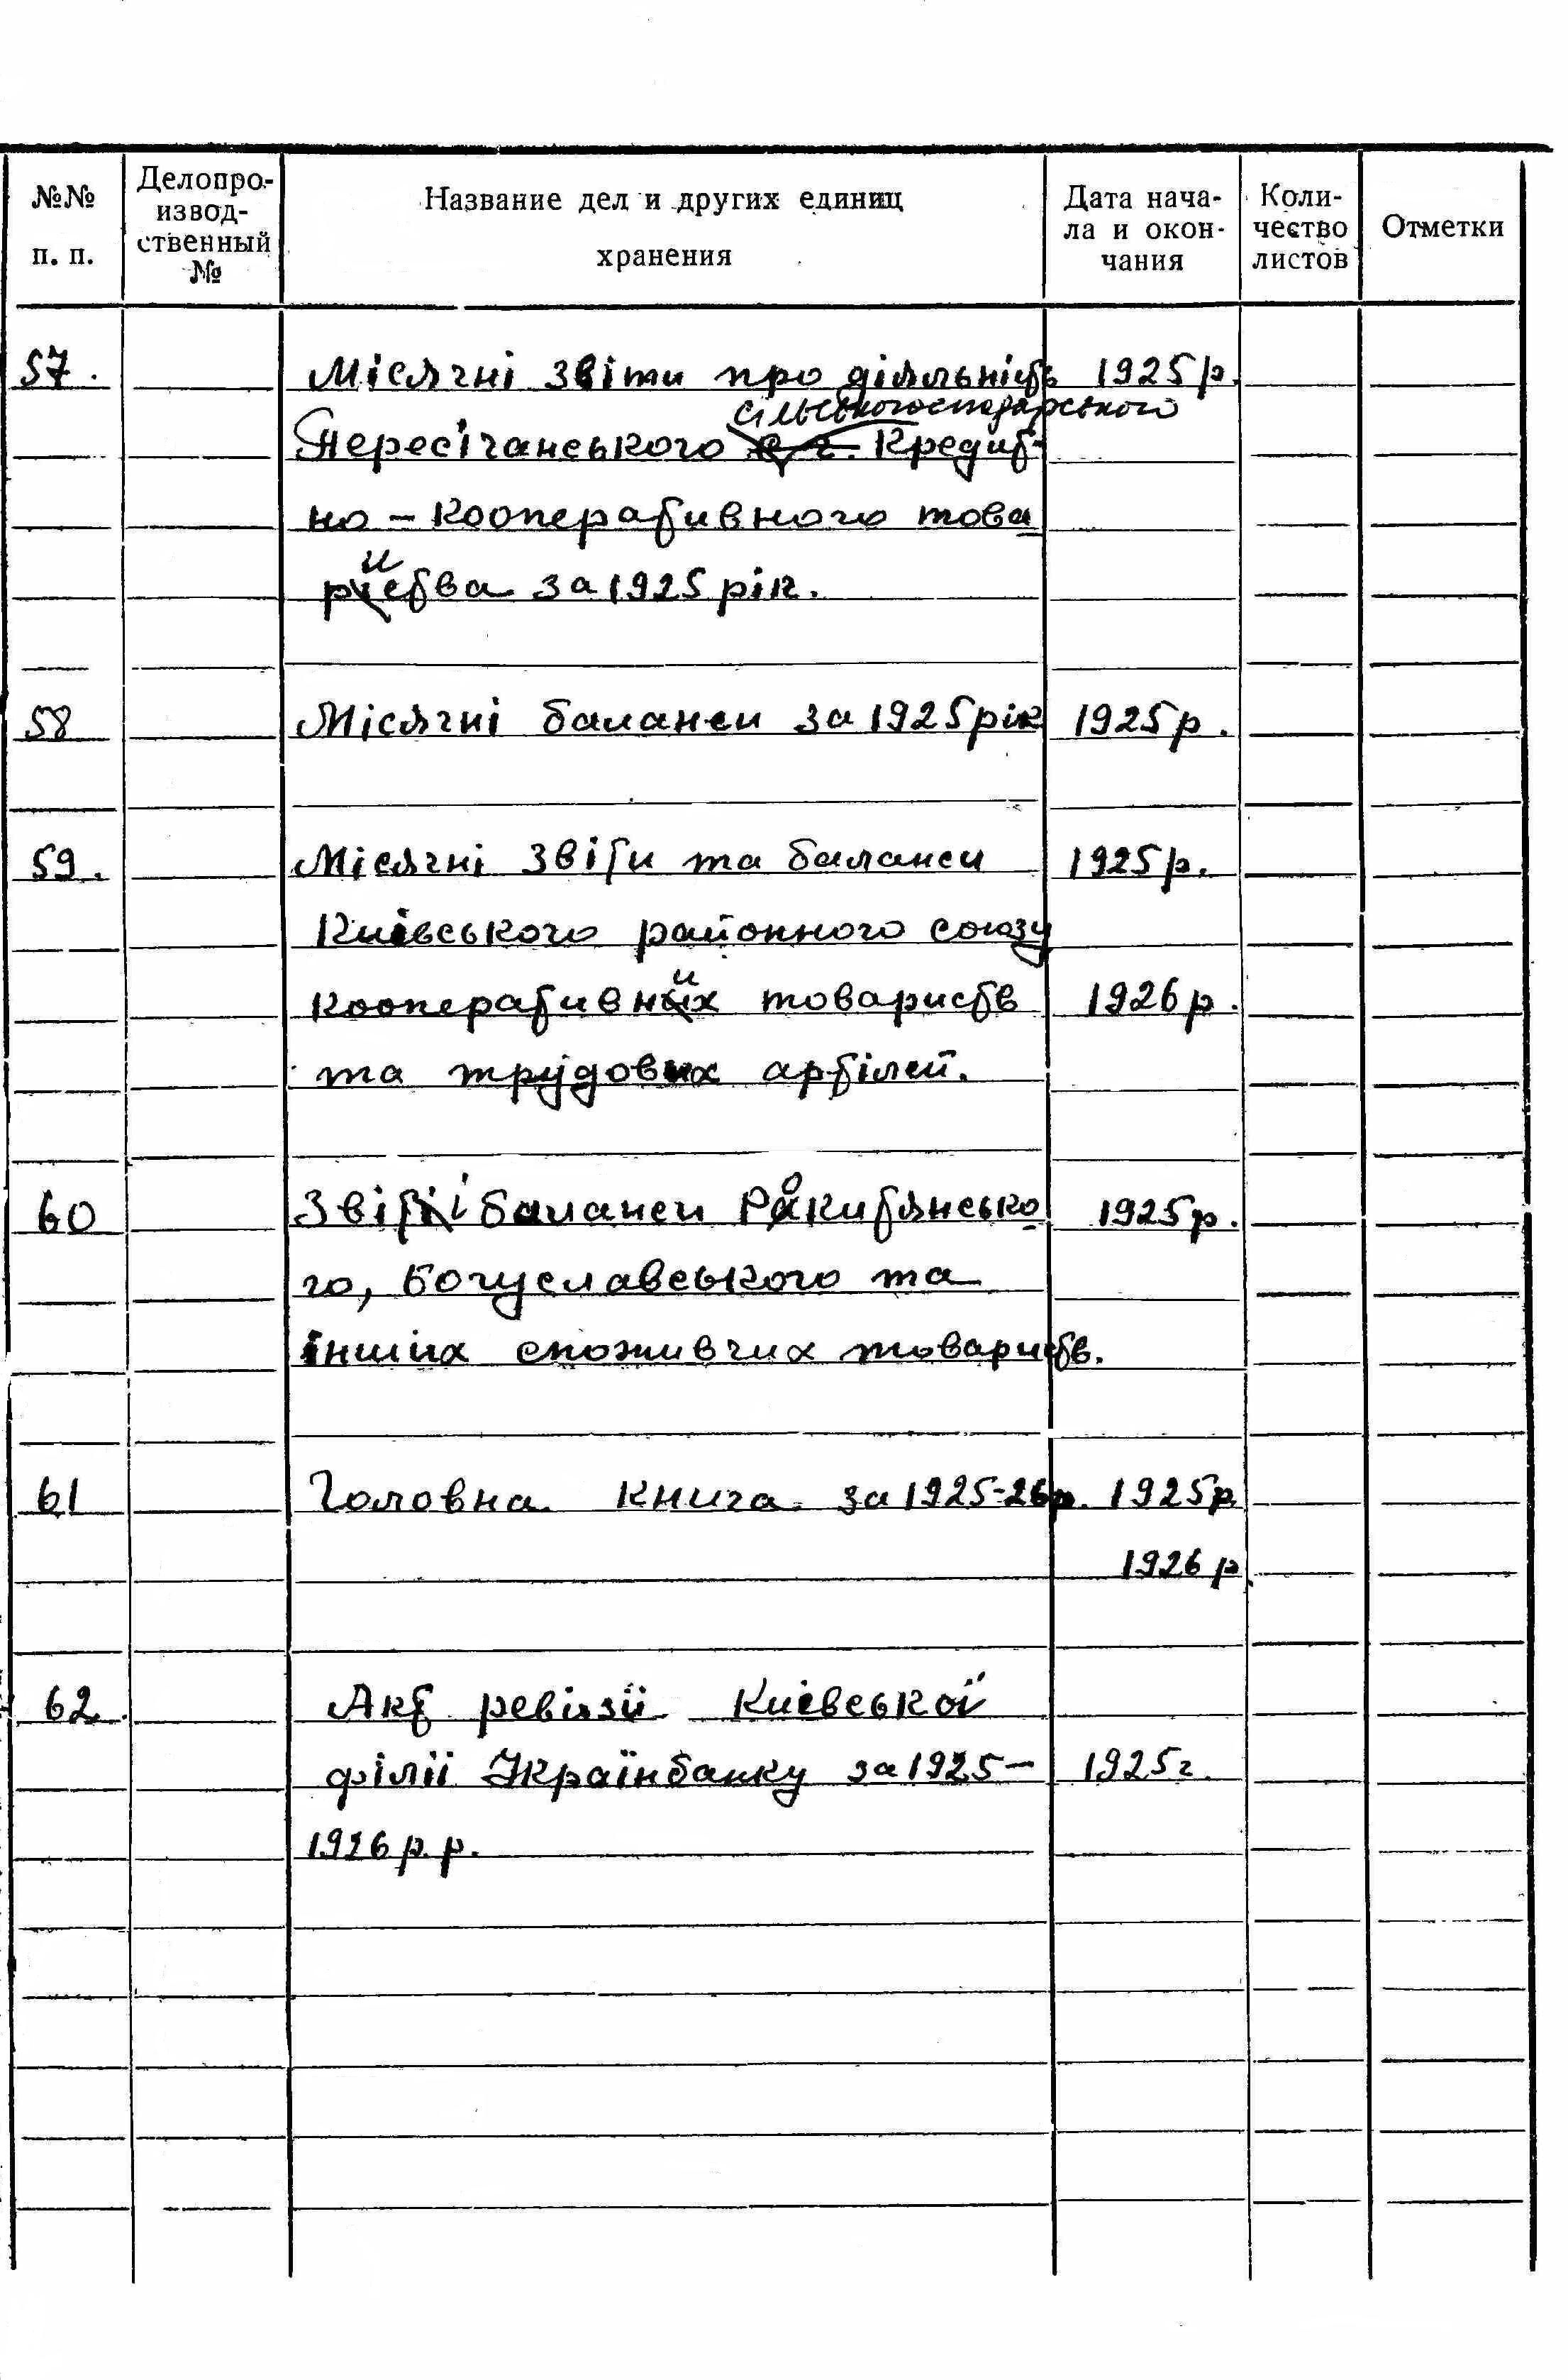 №№ п. п.
Делопро-
извод-
ственный
№
Название дел и других единиц
хранения
Дата нача-
ла и окон-
чания
Коли-
чество
листов
Отметки
57. Місячні звіти про діяльність 1925 р.
сільськогосподарського
Пересічанського с. г. Кредит-
но – кооперативного това
риства за 1925 рік.
58 Місячні баланси за 1925 рік 1925 р.
59. Місячні звіти та баланси 1925 р.
Київського районного союзу
кооперативних товариств 1926 р.
та трудових артілей.
60 Звіти і баланси Рокитянсько 1925 р.
го, Богуславського та
інших споживчих товариств.
61 Головна книга за 1925-26 р. 1925 р
1926 р.
62. Акт ревізії Київської
філії Українбанку за 1925– 1925 г.
1926 р. р.